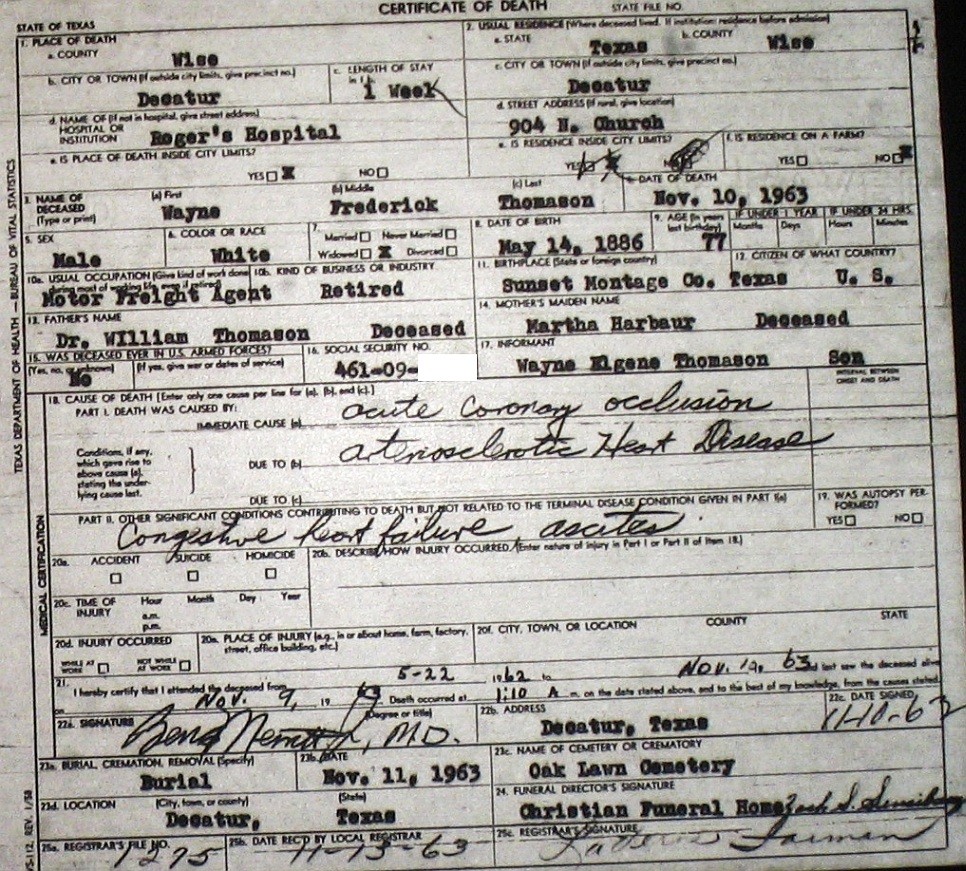 CERTIFICATE OF DEATH
STATE FILE NO.
STATE OF TEXAS
1. PLACE OF DEATH
a. COUNTY
Wise
2. USUAL RESIDENCE (Where deceased lived. If institution: residence before admission)
a. STATE
Texas
b. COUNTY
Wise
b. CITY OR TOWN (If outside city limits, give precinct no.)
Decatur
c. LENGTH OF STAY
in 1 b.
1 Week
c. CITY OR TOWN (If outside city limits, give precinct no.)
Decatur
d. NAME OF (If not in hospital, give street address)
HOSPITAL OR
INSTITUTION
Roger's Hospital
d. STREET ADDRESS (If rural, give location)
904 N. Church
e. IS PLACE OF DEATH INSIDE CITY LIMITS?
YES X NO
e. IS RESIDENCE INSIDE CITY LIMITS?
YES X NO
f. IS RESIDENCE ON A FARM?
YES NO X
3. NAME OF
DECEASED
(Type or print)
(a) First
Wayne
(b) Middle
Frederick
(c) Last
Thomason
4. DATE OF DEATH
Nov. 10, 1963
5. SEX
Male
6. COLOR OR RACE
White
7.
Married Never Married
Widowed X Divorced
8. DATE OF BIRTH
May 14, 1886
9. AGE (In years
last birthday)
77
IF UNDER 1 YEAR
Months Days
IF UNDER 24 HRS.
Hours Minutes
10a. USUAL OCCUPATION (Give kind of work done
during most of working life, even if retired)
Motor Freight Agent
10b. KIND OF BUSINESS OR INDUSTRY
Retired
11. BIRTHPLACE (State or foreign country)
Sunset Montage Co. Texas
12. CITIZEN OF WHAT COUNTRY?
U. S.
13. FATHER'S NAME
Dr. WIlliam Thomason Deceased
14. MOTHER'S MAIDEN NAME
Martha Harbaur Deceased
15. WAS DECEASED EVER IN U.S. ARMED FORCES?
(Yes, no, or unknown)
No
(If yes, give war or dates of service)
16. SOCIAL SECURITY NO.
461-09-
17. INFORMANT
Wayne Elgene Thomason Son
18. CAUSE OF DEATH [Enter only one cause per line for (a), (b), and (c).]
INTERVAL BETWEEN
ONSET AND DEATH
PART I. DEATH WAS CAUSED BY:
IMMEDIATE CAUSE (a)
acute Coronary occlusion
Conditions, if any,
which gave rise to
above cause (a),
stating the under-
lying cause last.
DUE TO (b)
arteriosclerotic Heart Disease
DUE TO (c)
PART II. OTHER SIGNIFICANT CONDITIONS CONTRIBUTING TO DEATH BUT NOT RELATED TO THE TERMINAL DISEASE CONDITION GIVEN IN PART I(a)
Congestive heart failure, ascites.
19. WAS AUTOPSY PER-
FORMED?
YES NO
20a.
ACCIDENT SUICIDE HOMICIDE
20b. DESCRIBE HOW INJURY OCCURRED. (Enter nature of injury in Part I or Part II of Item 18.)
20c. TIME OF
INJURY
Hour Month Day Year
a.m.
p.m.
20d. INJURY OCCURRED
WHILE AT
WORK
NOT WHILE
AT WORK
20e. PLACE OF INJURY (e.g., in or about home, farm, factory,
street, office building, etc.)
20f. CITY, TOWN, OR LOCATION COUNTY STATE
21.
I hereby certify that I attended the deceased from 5-22 1962 to Nov. 10, 63 and last saw the deceased alive
on Nov. 9, 19 63 Death occurred at 1:10 A m. on the date stated above, and to the best of my knowledge, from the causes stated.
22a. SIGNATURE
(Degree or title)
M.D.
22b. ADDRESS
Decatur, Texas
22c. DATE SIGNED
11-10-63
23a. BURIAL, CREMATION, REMOVAL (Specify)
Burial
23b. DATE
Nov. 11, 1963
23c. NAME OF CEMETERY OR CREMATORY
Oak Lawn Cemetery
23d. LOCATION
(City, town, or county)
Decatur,
(State)
Texas
24. FUNERAL DIRECTOR'S SIGNATURE
Christian Funeral Home
25a. REGISTRAR'S FILE NO.
1275
25b. DATE REC'D BY LOCAL REGISTRAR
11-13-63
25c. REGISTRAR'S SIGNATURE
TEXAS DEPARTMENT OF HEALTH — BUREAU OF VITAL STATISTICS
MEDICAL CERTIFICATION
VS-112, REV. 1/58